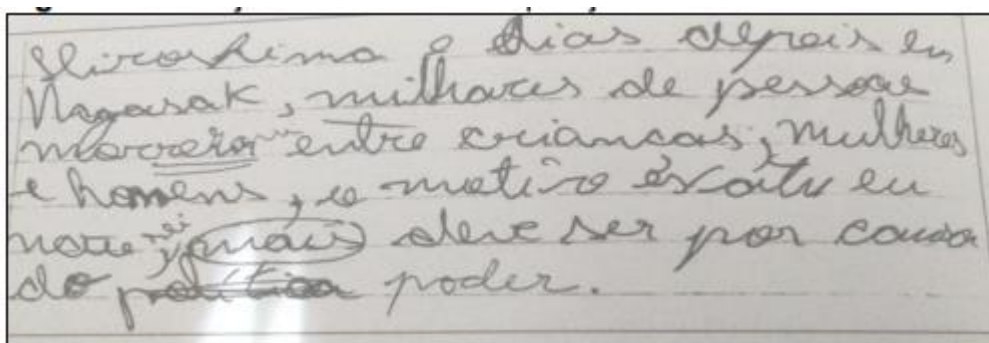 Hiroshima e dias depois en
Nagasak, milhares de pessoas
morrerão entre criancas, mulheres
e homens, o motivo éxatu eu
não sei, mais deve ser por causa
do política poder.